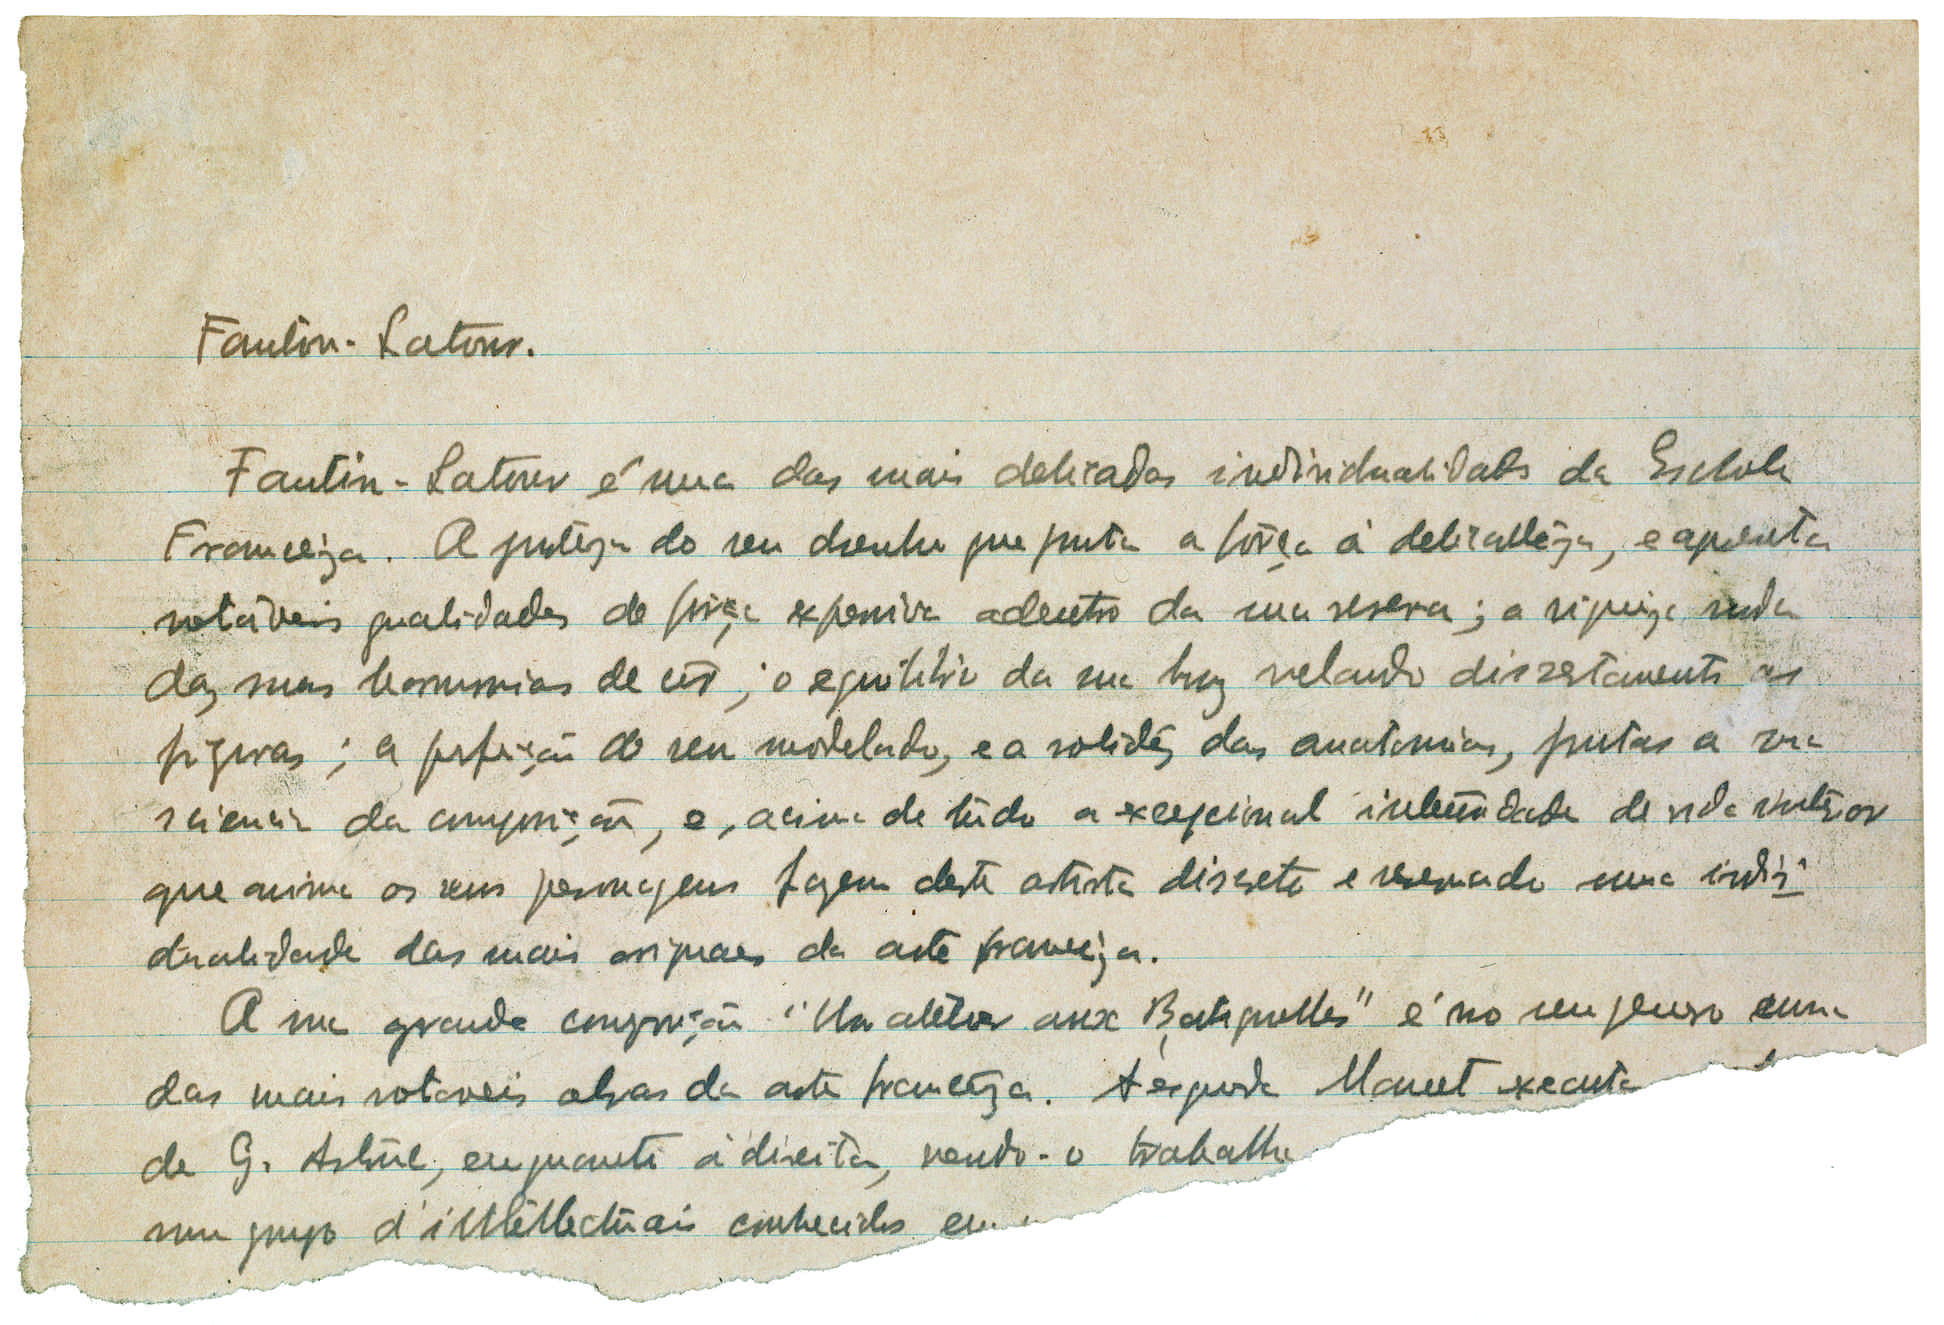 Fantin-Latour.
Fantin-Latour é uma das mais delicadas individualidades da Escola
Franceza. A pureza do seu desenho que junta a fôrça á delicadeza, e apresenta
notáveis qualidades de fôrça expressiva adentro da sua reserva; a riqueza
das suas harmonias de côr; o equilibrio da sua luz velando discretamente as
figuras; a perfeição do seu modelado, e a solidêz das anatomias, juntas a sua
sciencia da composição, e, acima de tudo a excepcional intensidade de vida interior
que anima os seus personagens fazem deste artista discreto e reservado uma indivi
dualidade das mais originaes da arte franceza.
A sua grande composição "Un atelier aux Batignolles" é no seu genero uma
das mais notaveis obras da arte francêza. A esquerda Manet executa
de G. Astruc, enquanto á direita, vendo-o trabalha
um grupo d'intellectuais conhecidos em